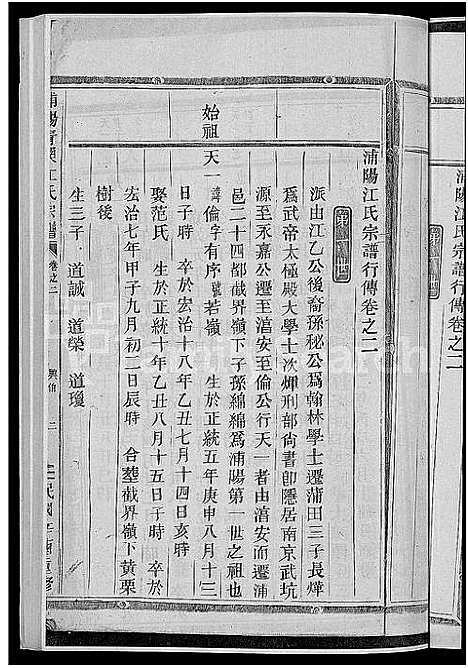 浦陽江氏宗譜行傳卷之二
派由江乙公後裔孫秘公爲翰林學士遷莆田三子長燁
爲武帝太極殿大學士次炯刑部尙書卽隱居南京武坑
源至永嘉公遷至淯安至倫公行天一者由淯安而遷浦
邑二十四都截界嶺下子孫綿綿爲浦陽第一世之祖也
始祖 天一 諱倫字有序號若嶺 生於正統五年庚申八月十三
日子時 卒於宏治十八年乙丑七月十四日亥時
娶范氏 生於正統十年乙丑八月十五日子時 卒於
宏治七年甲子九月初二日辰時 合塟截界嶺下黄栗
樹後
生三子 道誠 道榮 道瓊
江氏宗譜 卷之二 二 民國
浦陽江氏宗譜行傳卷之二